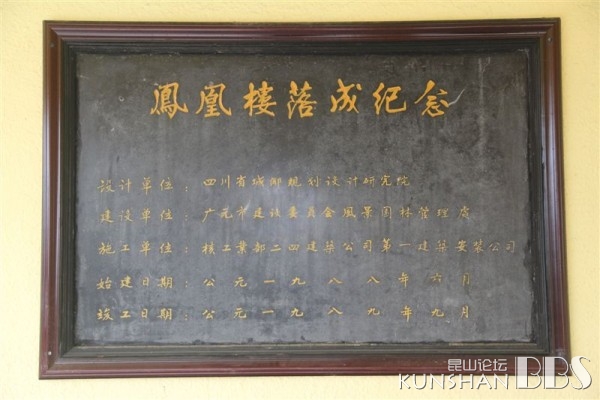 鳳凰楼落成纪念
设计单位：四川省城乡规划设计研究院
建设单位：广元市建设委员会風景园林管理處
施工单位：核工業部二四建築公司第一建築安装公司
始建日期：公元一九八八年六月
竣工日期：公元一九八九年九月
昆山论坛
KUNSHAN BBS